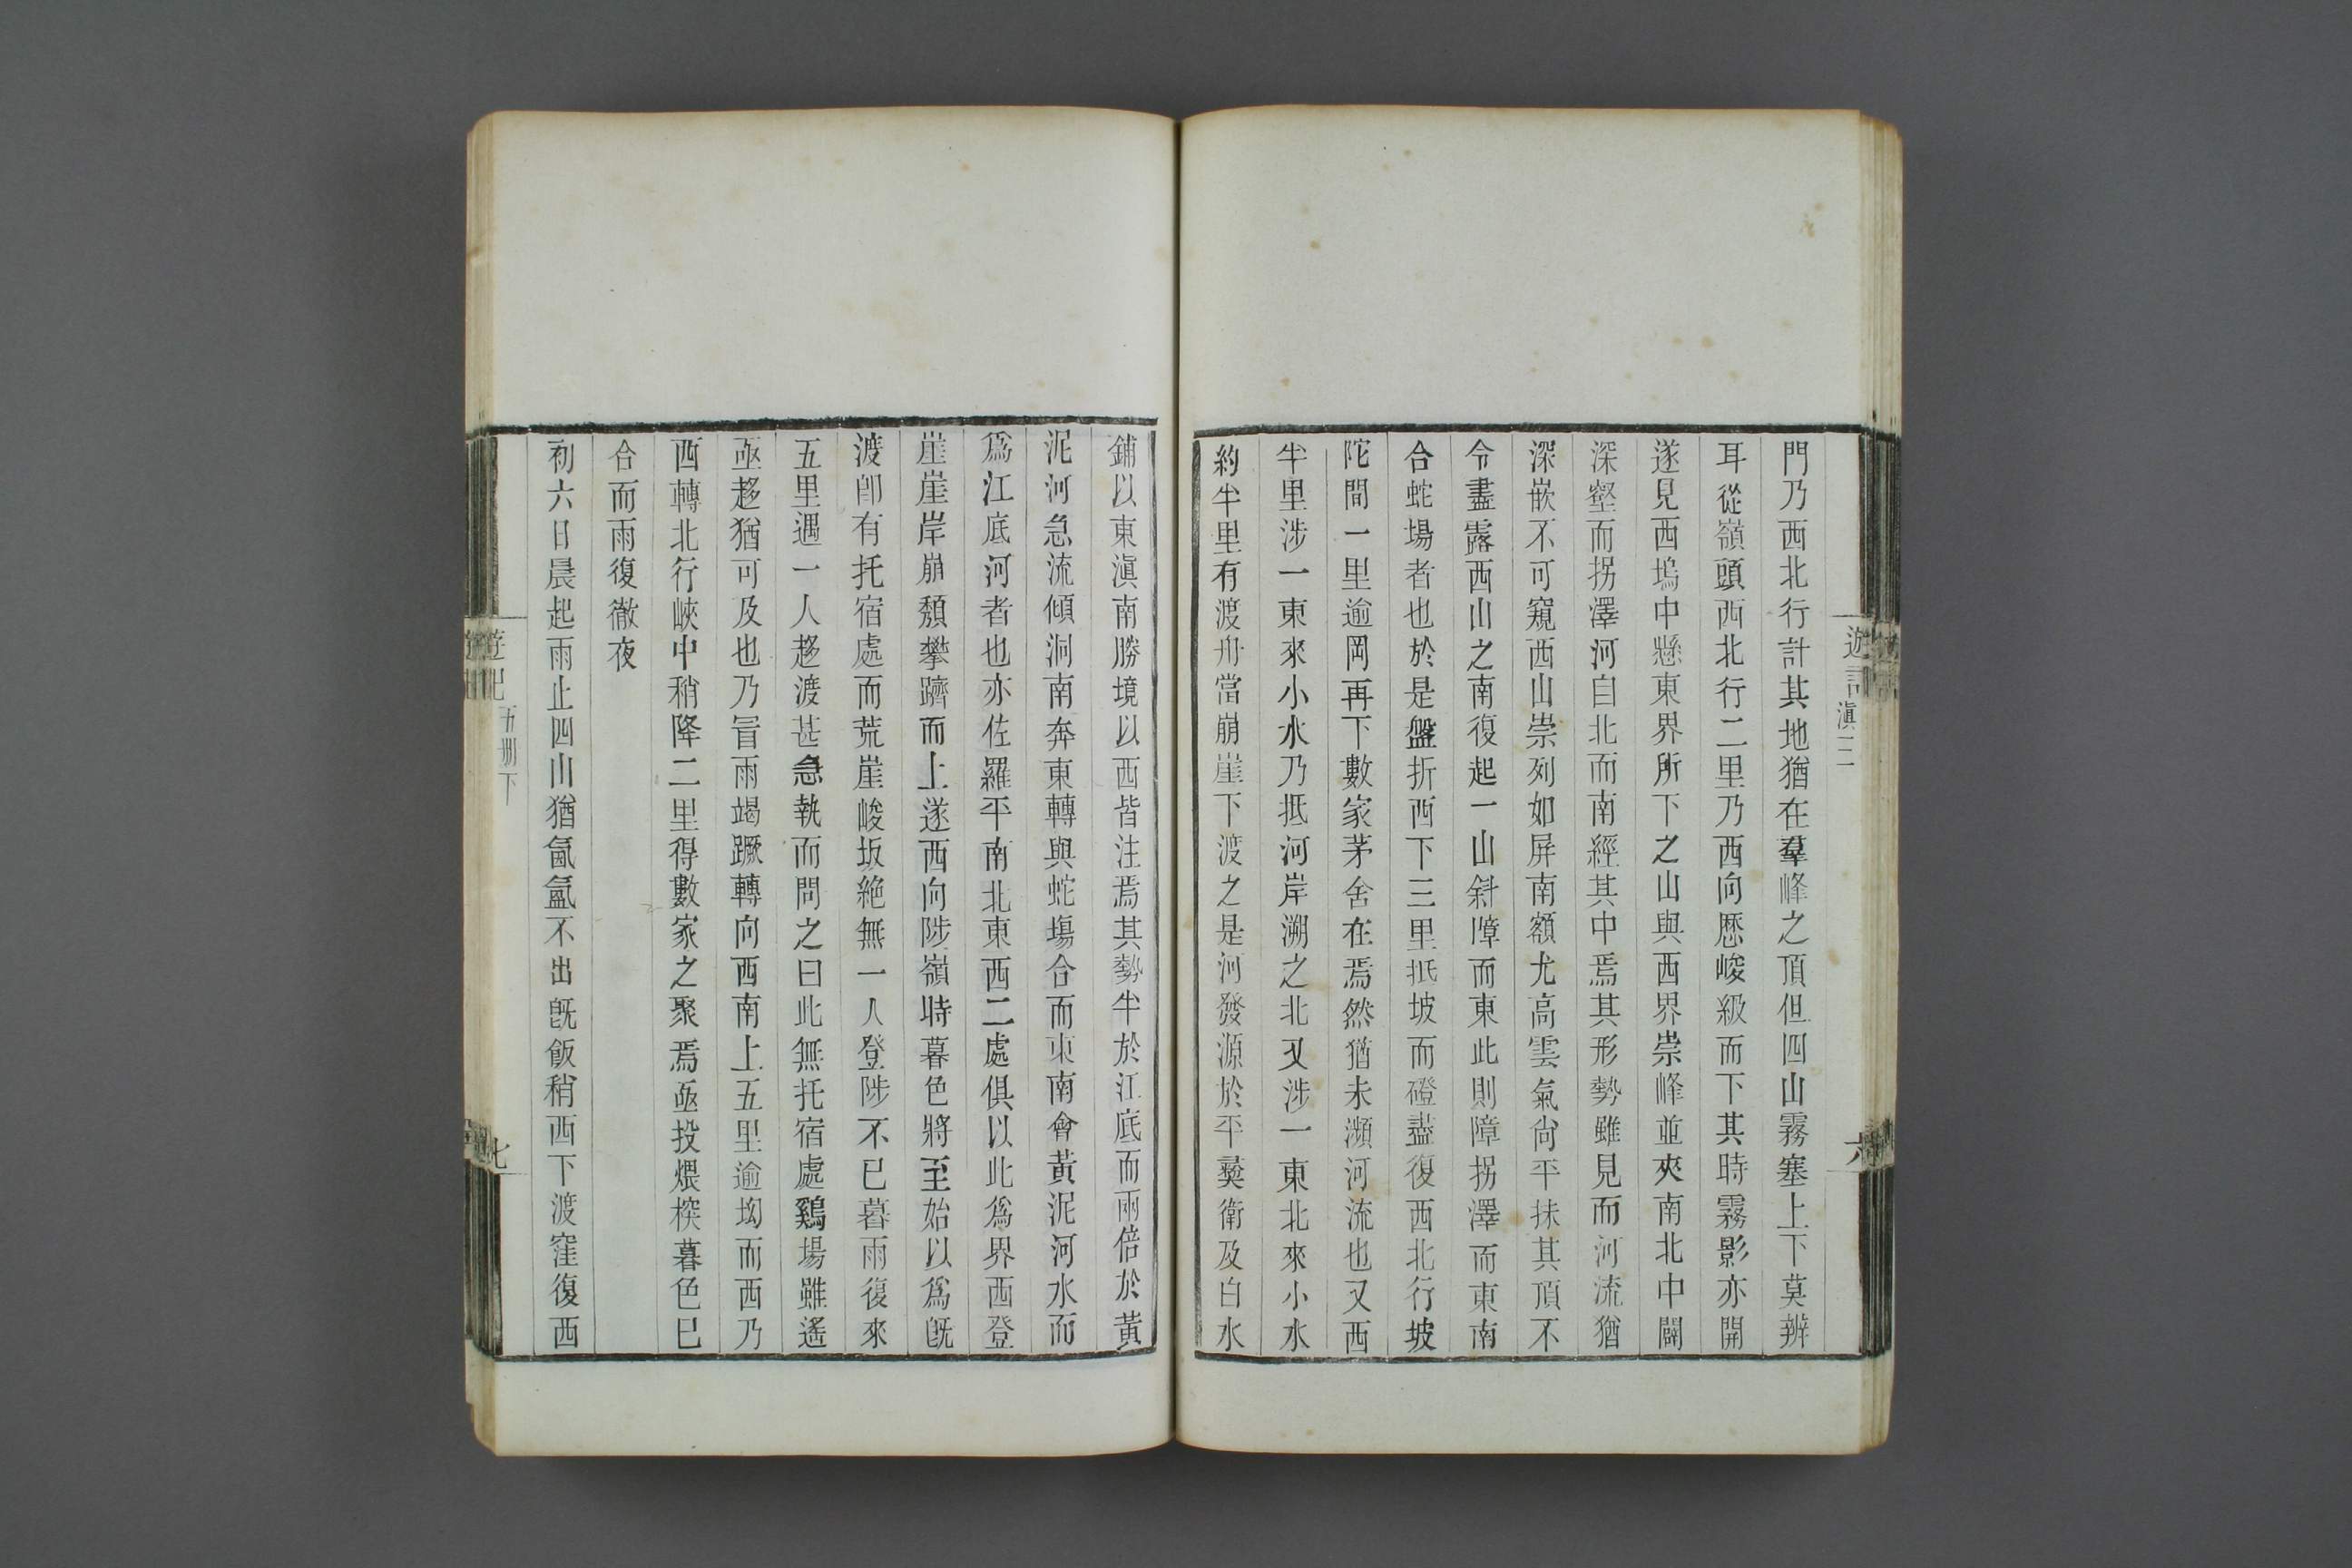 遊記滇三
六
門乃西北行計其地猶在羣峰之頂但四山霧塞上下莫辨
耳從嶺頭西北行二里乃西向歷峻級而下其時霧影亦開
遂見西塢中懸東界所下之山與西界崇峰並夾南北中闢
深壑而拐澤河自北而南經其中焉其形勢雖見而河流猶
深嵌不可窺西山崇列如屏南額尤高雲氣尙平抹其頂不
令盡露西山之南復起一山斜障而東此則障拐澤而東南
合蛇場者也於是盤折西下三里抵坡而磴盡復西北行坡
陀間一里逾岡再下數家茅舍在焉然猶未瀕河流也又西
半里涉一東來小水乃抵河岸溯之北又涉一東北來小水
約半里有渡舟當崩崖下渡之是河發源於平彜衛及白水
鋪以東滇南勝境以西皆注焉其勢半於江底而兩倍於黃
泥河急流傾洞南奔東轉與蛇場合而東南會黃泥河水而
爲江底河者也亦佐羅平南北東西二處俱以此爲界西登
崖崖岸崩頽攀躋而上遂西向陟嶺時暮色將至始以爲旣
渡卽有托宿處而荒崖峻坂絕無一人登陟不已暮雨復來
五里遇一人趨渡甚急執而問之曰此無托宿處鷄場雖遙
亟趨猶可及也乃冒雨竭蹶轉向西南上五里逾坳而西乃
西轉北行峽中稍降二里得數家之聚焉亟投煨榾暮色已
合而雨復徹夜
初六日晨起雨止四山猶氤氳不出旣飯稍西下渡窪復西
遊記
五册下
七